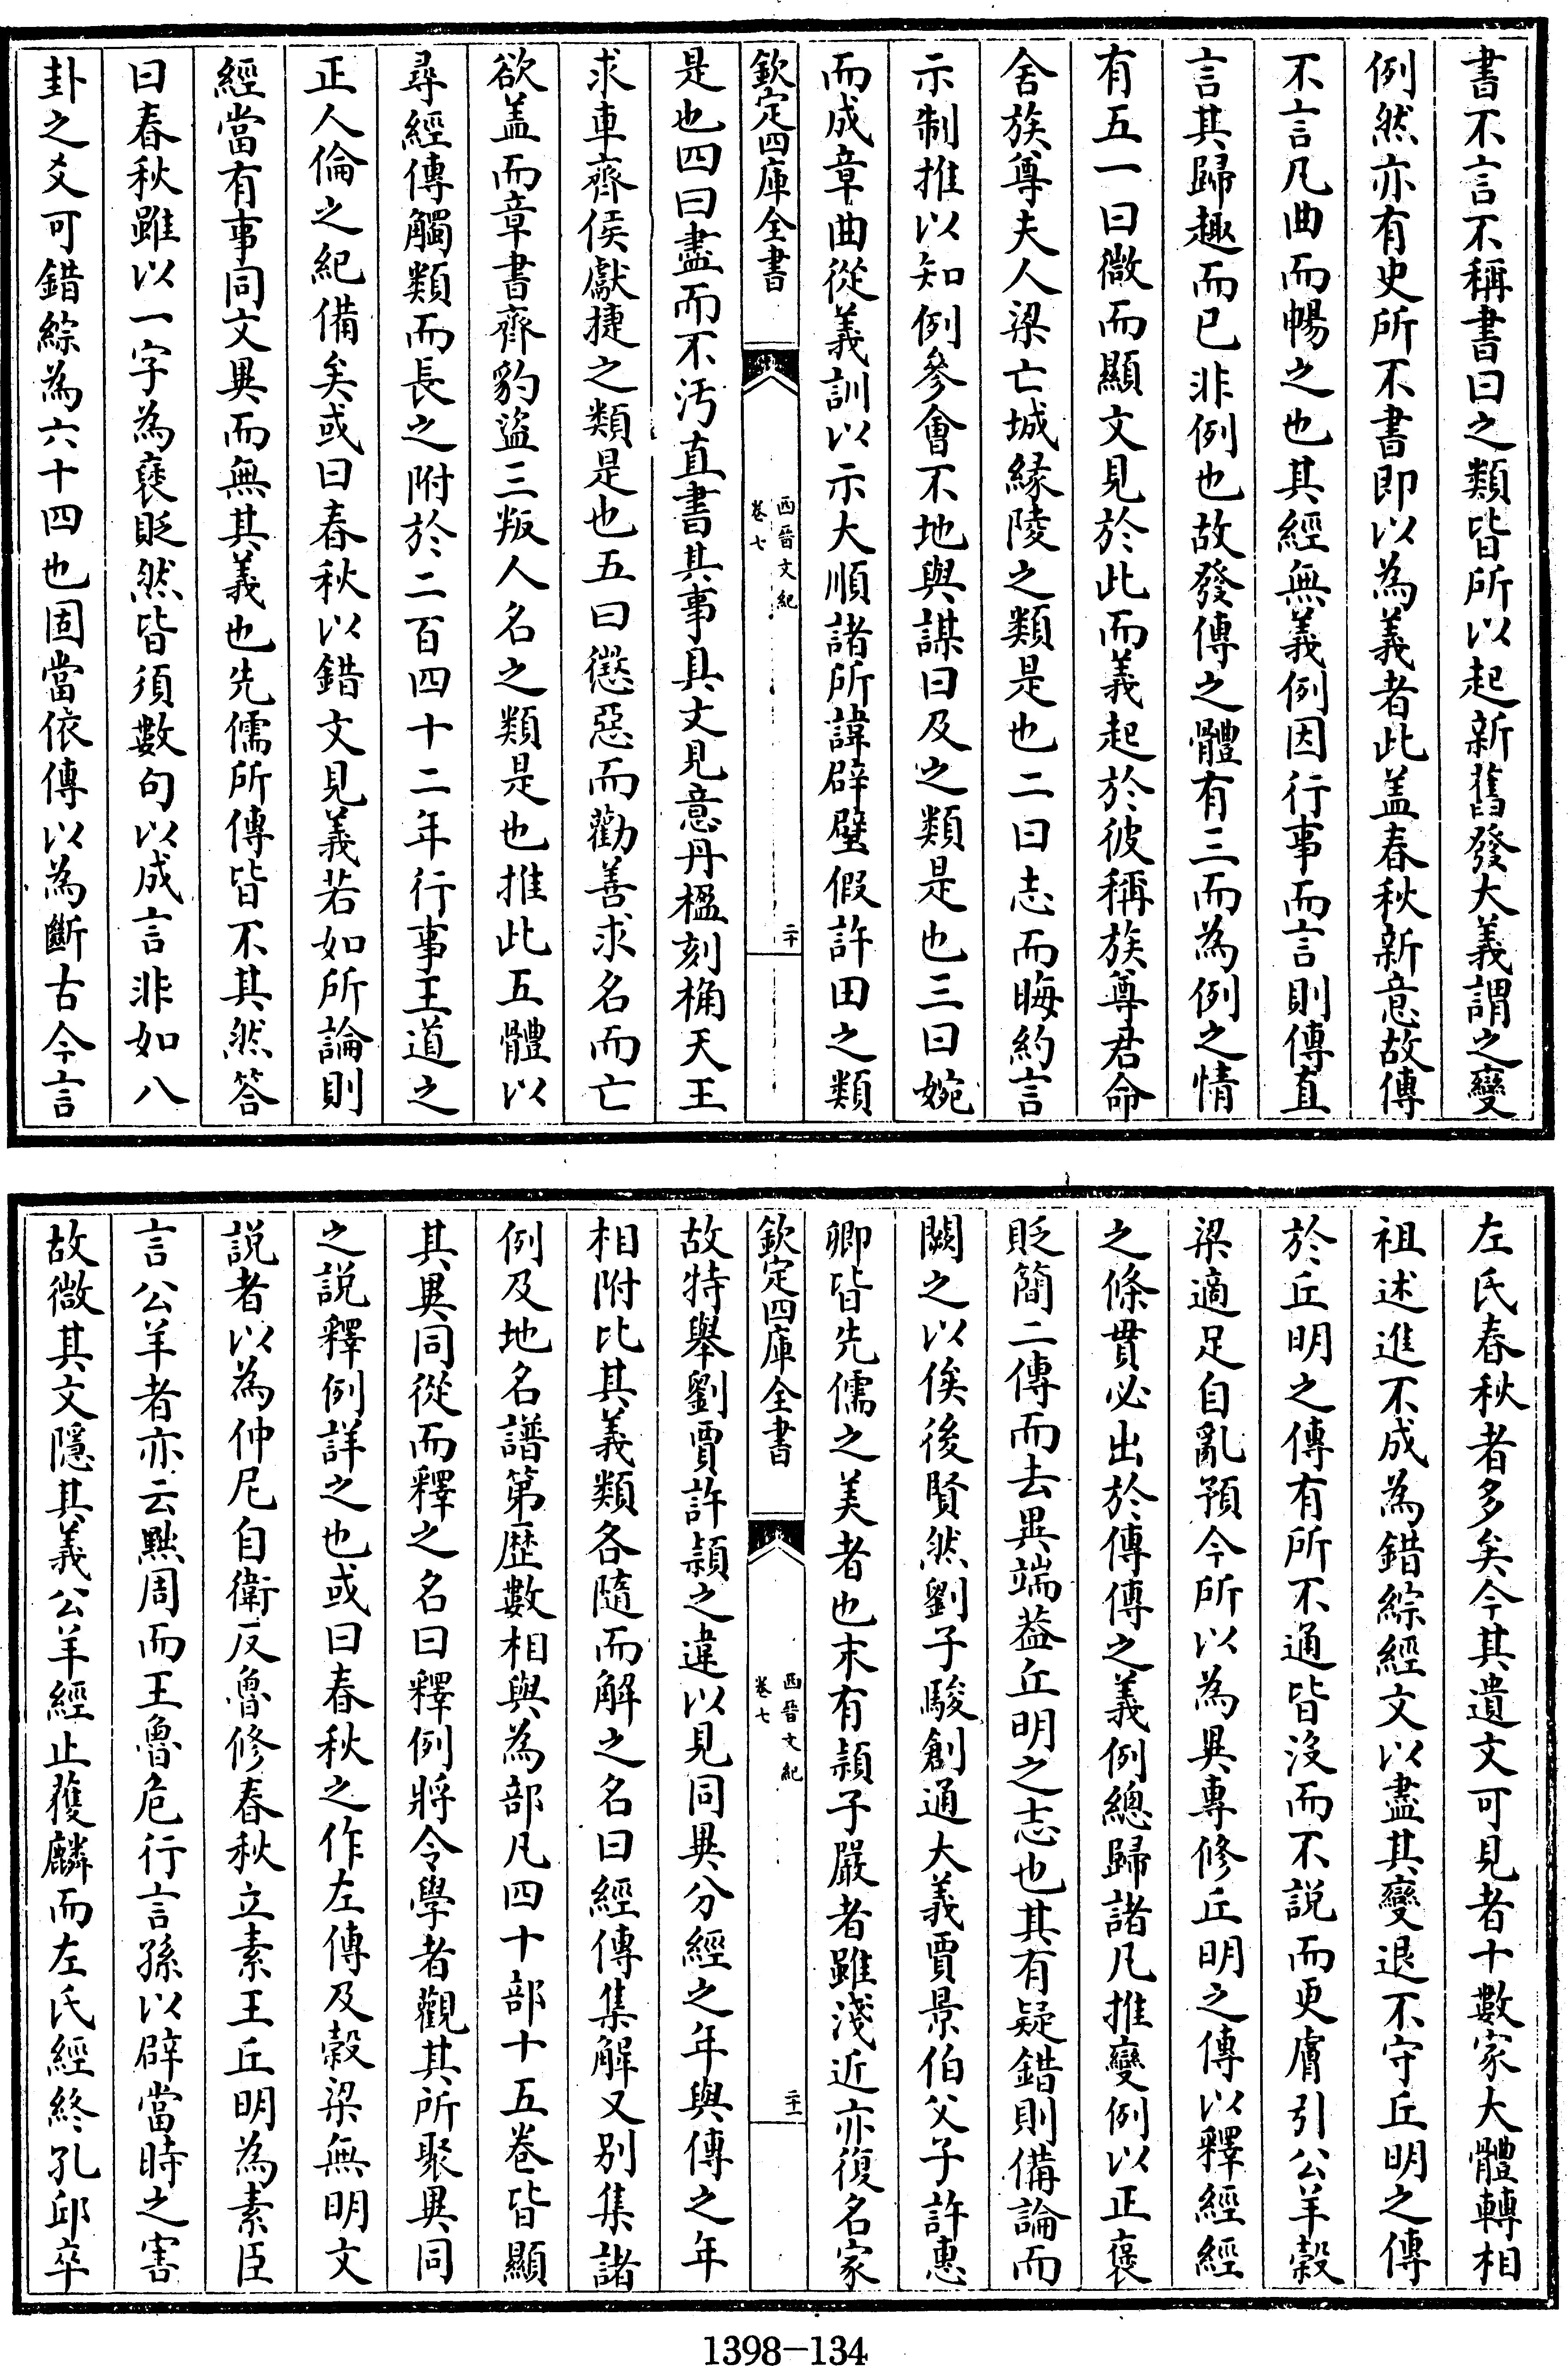 書不言不稱書曰之類皆所以起新舊發大義謂之變
例然亦有史所不書即以為義者此盖春秋新意故傳
不言凡曲而暢之也其經無義例因行事而言則傳直
言其歸趣而已非例也故發傳之體有三而為例之情
有五一曰微而顯文見於此而義起於彼稱族尊君命
舍族尊夫人梁亡城縁陵之類是也二曰志而晦約言
示制推以知例參會不地與謀曰及之類是也三曰婉
而成章曲從義訓以示大順諸所諱辟璧假許田之類
欽定四庫全書
西晉文紀
卷七
二十
是也四曰盡而不汚直書其事具文見意丹楹刻桷天王
求車齊侯獻捷之類是也五曰懲惡而勸善求名而亡
欲盖而章書齊豹盜三叛人名之類是也推此五體以
尋經傳觸類而長之附於二百四十二年行事王道之
正人倫之紀備矣或曰春秋以錯文見義若如所論則
經當有事同文異而無其義也先儒所傳皆不其然答
曰春秋雖以一字為褒貶然皆須數句以成言非如八
卦之爻可錯綜為六十四也固當依傳以為斷古今言
左氏春秋者多矣今其遺文可見者十數家大體轉相
祖述進不成為錯綜經文以盡其變退不守丘明之傳
於丘明之傳有所不通皆沒而不說而更膚引公羊榖
梁適足自亂預今所以為異專修丘明之傳以釋經經
之條貫必出於傳傳之義例總歸諸凡推變例以正褒
貶簡二傳而去異端葢丘明之志也其有疑錯則備論而
闕之以俟後賢然劉子駿創通大義賈景伯父子許惠
卿皆先儒之美者也末有頴子嚴者雖淺近亦復名家
欽定四庫全書
西晉文紀
卷七
二十一
故特舉劉賈許頴之違以見同異分經之年與傳之年
相附比其義類各隨而解之名曰經傳集解又别集諸
例及地名譜第歴數相與為部凡四十部十五卷皆顯
其異同從而釋之名曰釋例將令學者觀其所聚異同
之說釋例詳之也或曰春秋之作左傳及榖梁無明文
說者以為仲尼自衛反魯修春秋立素王丘明為素臣
言公羊者亦云黜周而王魯危行言孫以辟當時之害
故微其文隱其義公羊經止獲麟而左氏經終孔邱卒
1398-134